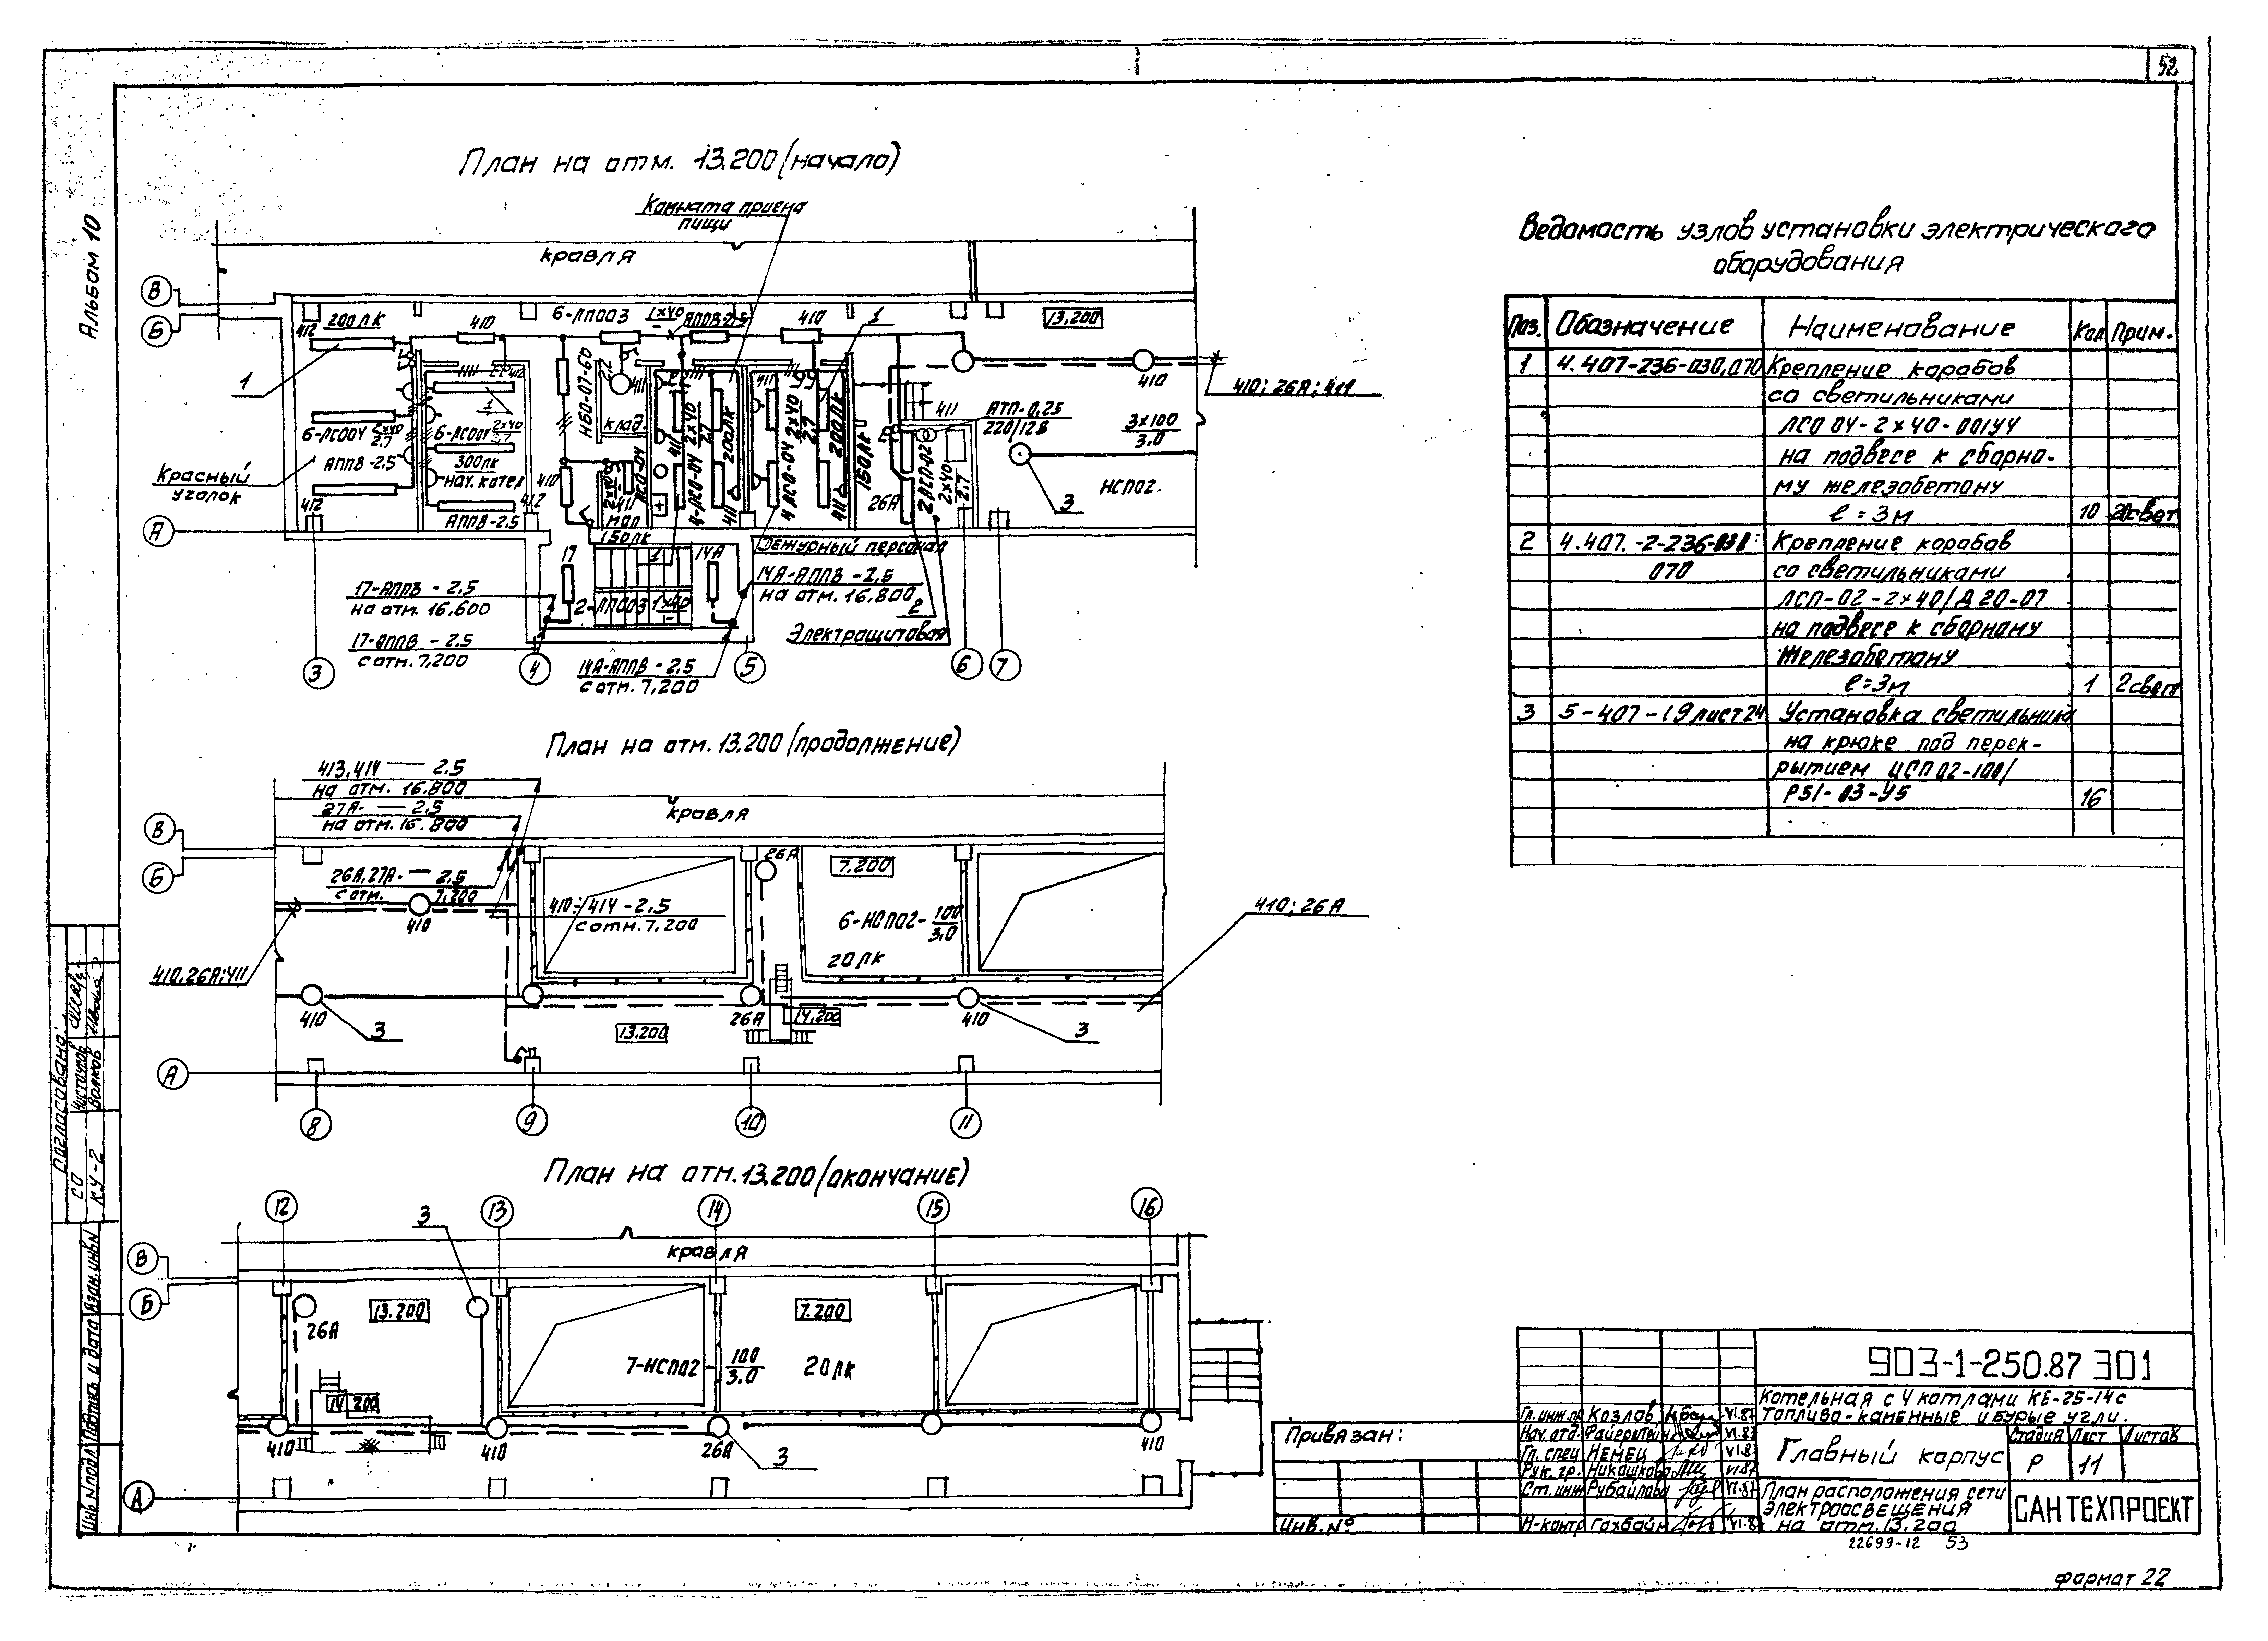 52
Альбом 10
План на отм. 13.200 (начало)
Комната приема
пищи
кровля
В
Б
А
412
200 лк
410
6-ЛПО03 1х40
АППВ-2,5
410
1
13.200
1
412
6-ЛСО04 2х40/2.7
АППВ-2,5
Красный
уголок
412
6-ЛСО04 2х40/2.7
300 лк
нач. котел
АППВ-2,5
412
НБО-07-60
2.2
411
клад.
410
ЛСО-04
411
150 лк
411
4-ЛСО-04 2х40/2.7
200 лк
411
4 ЛСО-04 2х40/2.7
200 лк
411
150 лк
411
АТП-0,25
220/12В
26А
2 ЛСП-02
2х40/2.7
3х100
3.0
410
410; 26А; 411
НСП02
3
Дежурный персонал
17
1
14А
2-ЛПО03 1х40
17-АППВ-2,5
на отм. 16,600
17-АППВ-2,5
с отм. 7,200
14А-АППВ-2,5
на отм. 16.800
14А-АППВ-2,5
с отм. 7,200
2
Электрощитовая
3
4
5
6
7
План на отм. 13.200 (продолжение)
413,414 — 2,5
на отм. 16.800
27А- — 2,5
на отм. 16.800
кровля
В
Б
А
26А,27А- — 2,5
с отм. 7,200
410
410;414-2,5
с отм. 7,200
26А
7.200
6-НСП02- 100/3,0
20 лк
410; 26А
410,26А;411
410
3
13.200
26А
14,200
410
3
8
9
10
11
План на отм. 13.200 (окончание)
12
13
14
15
16
3
кровля
В
Б
А
26А
13.200
7.200
7-НСП02 - 100/3.0
20 лк
14.200
410
410
26А
3
410
Ведомость узлов установки электрического
оборудования
Поз. Обозначение Наименование Кол Прим.
1 4.407-236-030,070 Крепление коробов
со светильниками
ЛСО 04-2х40-001У4
на подвесе к сборно-
му железобетону
ℓ = 3м 10 20свет
2 4.407.-2-236-030: Крепление коробов
070 со светильниками
ЛСП-02-2х40/Д20-07
на подвесе к сборному
железобетону
ℓ = 3м 1 2свет
3 5-407-19 лист 24 Установка светильника
на крюке под перек-
рытием НСП02-100/
Р51-03-У5 16
Согласовано:
СО
КУ-2 Волков
Инв.№подл. Подпись и дата Взам.инв.№
Привязан:
Инв. №
903-1-250.87 ЭО1
Котельная с 4 котлами КЕ-25-14с
Топливо-каменные и бурые угли.
Гл. инж. пр. Козлов VI.87
Нач. отд. Файерштейн VI.87
Гл. спец Немец VI.87
Рук. гр. Никашкова VI.87
Ст. инж Рубайлова VI.87
Н-контр Гохбойм VI.87
Главный корпус
Стадия Лист Листов
Р 11
План расположения сети
электроосвещения
на отм. 13,200
САНТЕХПРОЕКТ
22699-12 53
формат 22